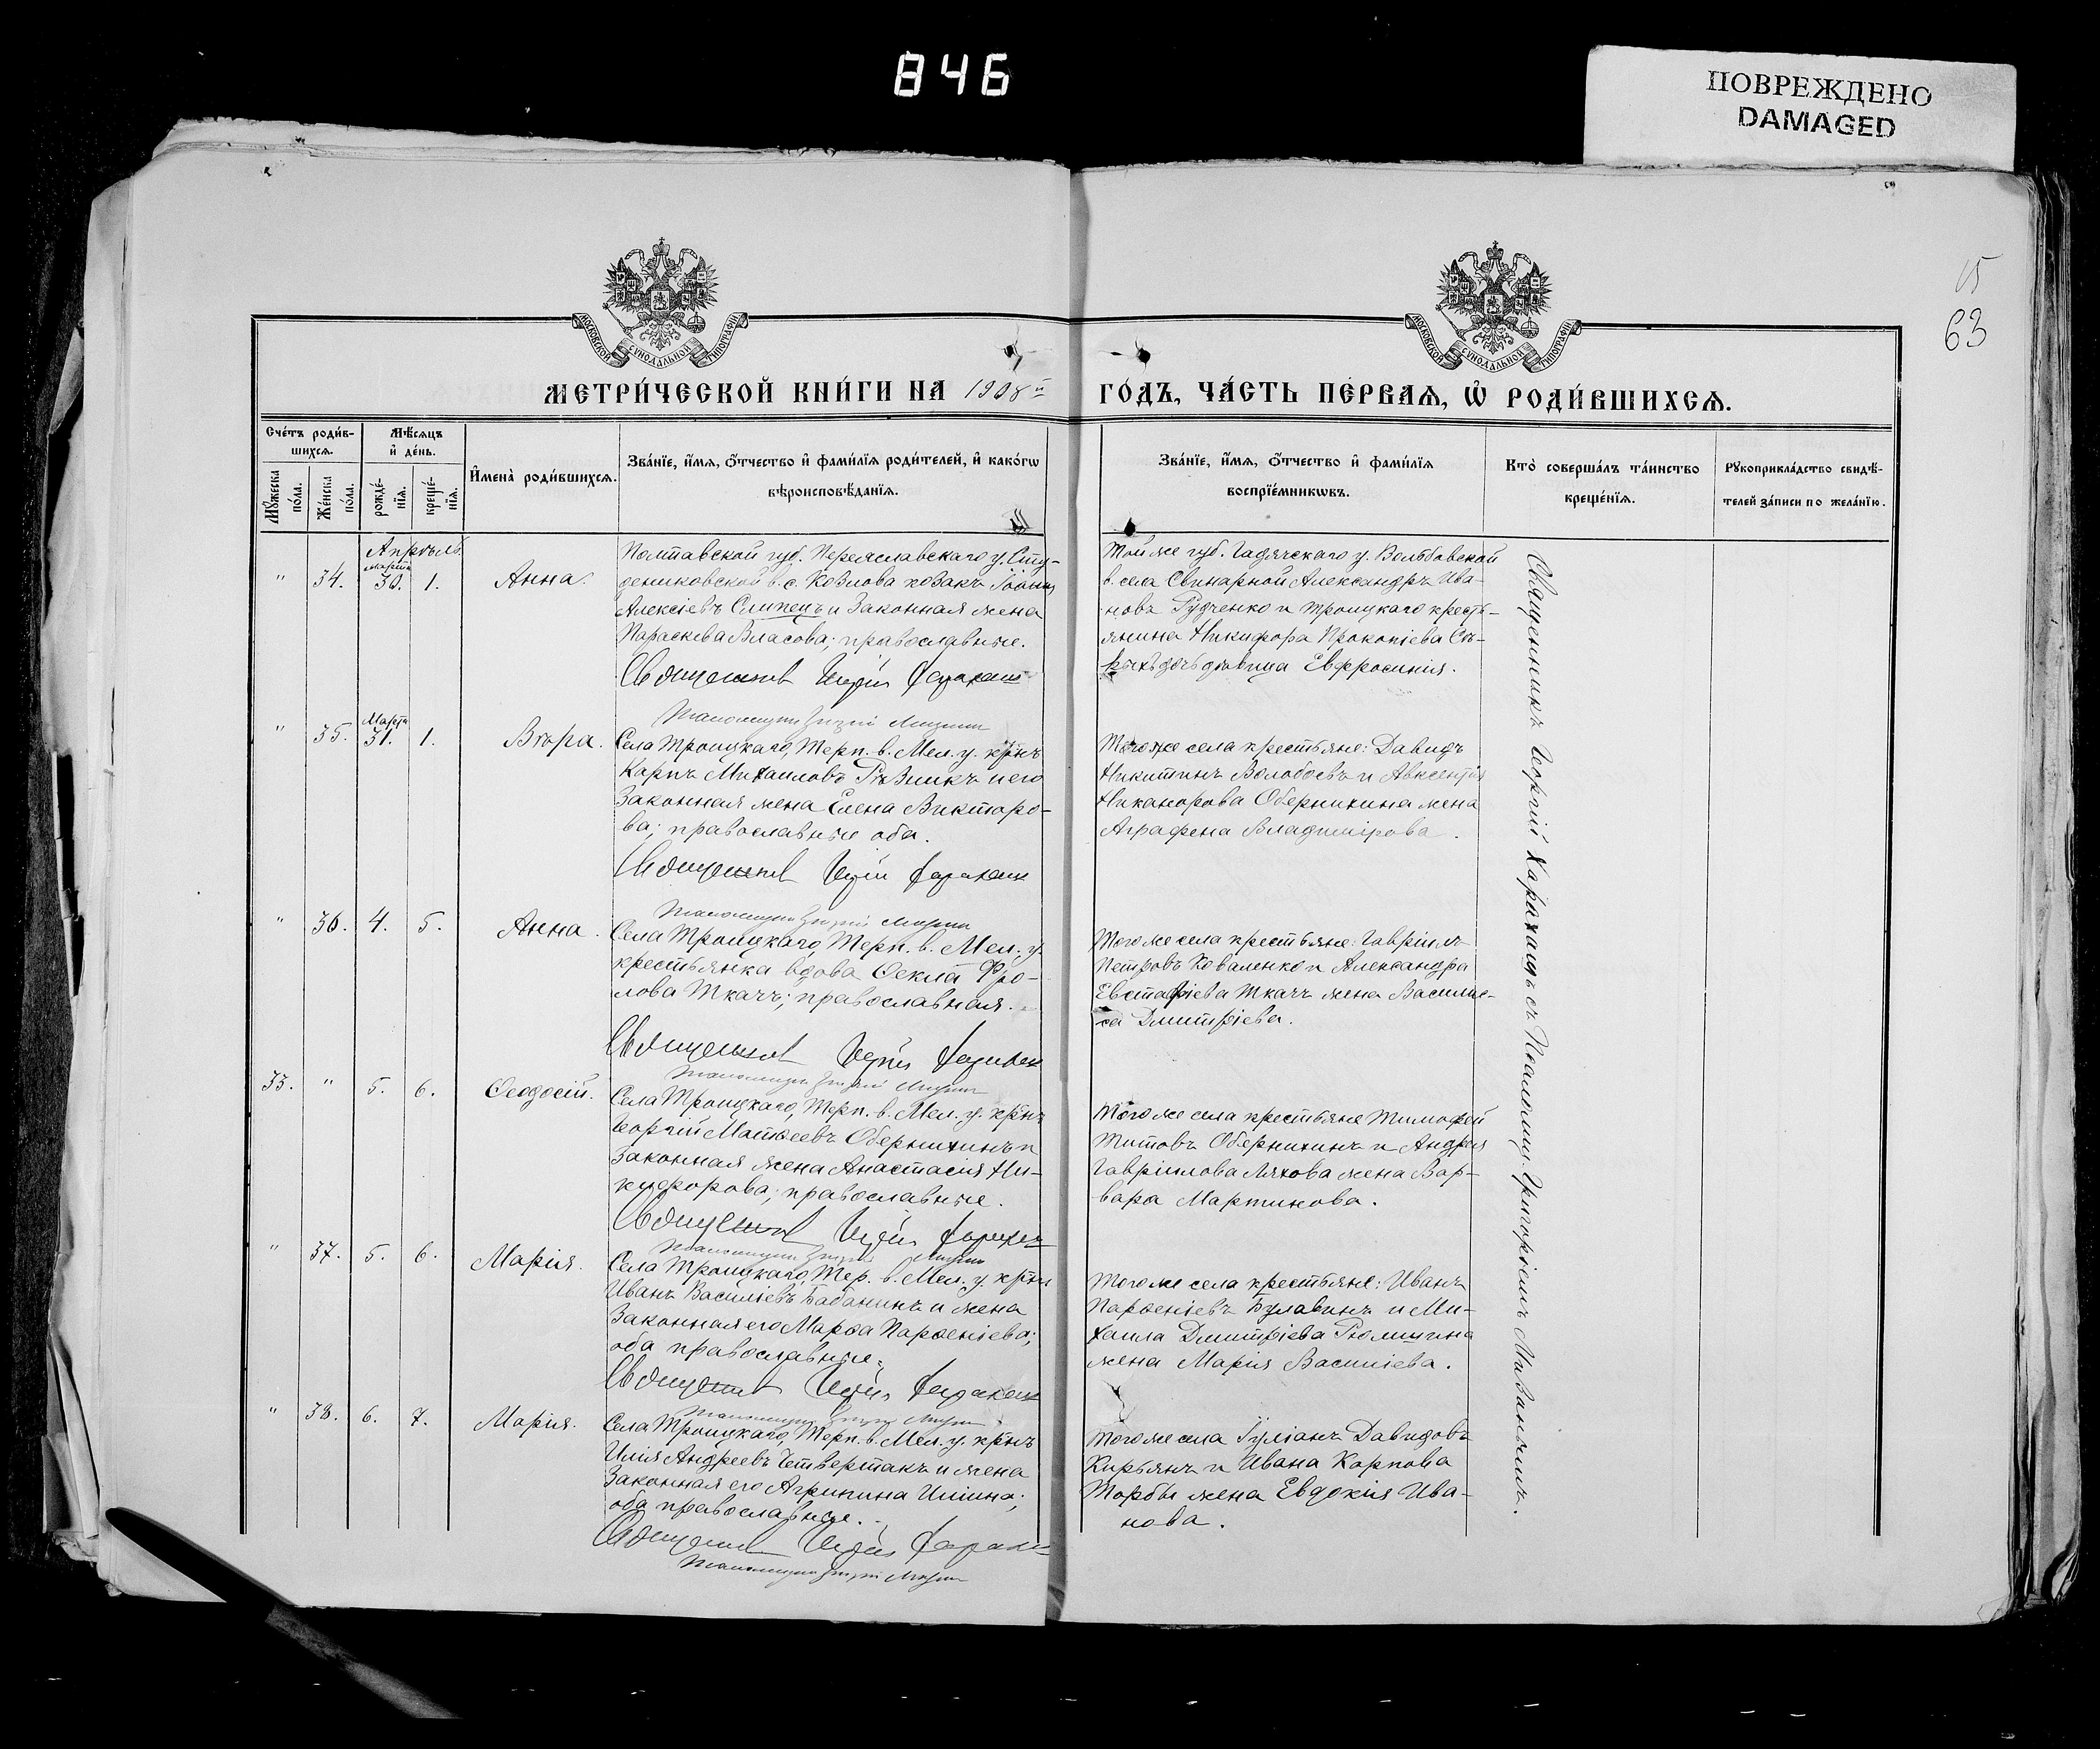 846
ПОВРЕЖДЕНО
DAMAGED
15
63
МОСКОВСКОЙ СУНОДАЛЬНОЙ ТИПОГРАФІИ
МОСКОВСКОЙ СУНОДАЛЬНОЙ ТИПОГРАФІИ
МЕТРИ́ЧЕСКОЙ КНИ́ГИ НА 1908й ГО́ДЪ, ЧА́СТЬ ПЕ́РВАЯ, Ѡ҆ РОДИ́ВШИХСЯ.
Сче́тъ роди́в-
шихся.
Мѣ́сяцъ
и҆ де́нь.
Мꙋ́жеска
по́ла.
Же́нска
по́ла.
рожде́-
нїя.
креще́-
нїя.
И҆мена̀ роди́вшихся.
Зва́нїе, и҆́мя, ѻ҆́тчество и҆ фами́лїя роди́телей, и҆ како́гѡ
вѣроисповѣ́данїя.
Зва́нїе, и҆́мя, ѻ҆́тчество и҆ фами́лїя
воспрїе́мникѡвъ.
Кто̀ соверша́лъ та́инство
креще́нїя.
Рꙋкоприкла́дство свидѣ́-
телей за́писи по жела́нїю.
Апрѣль
Марта
" 34. 30. 1. Анна.
Полтавской губ. Переяславскаго у. Сту-
дениковской в. с. Козлова козакъ Іоаннъ
Алексіевъ Слипецъ и Законная жена
Параскева Власова; православные.
Священникъ Георгій Харахашъ
Той же губ. Гадячскаго у. Вельбовской
в. села Свинарной Александръ Ива-
новъ Рудченко и Троицкаго кресть-
янина Никифора Прокопіева Сѣ-
рыхъ дочь дѣвица Евфросинія.
Марта
" 35. 31. 1. Вѣра.
Села Троицкаго, Терп. в. Мел. у. кр-нъ
Карпъ Михаиловъ Рѣзникъ и его
Законная жена Елена Викторо-
ва; православные оба.
Священникъ Георгій Харахашъ
Того же села крестьяне: Давидъ
Никитинъ Волобоевъ и Авксентія
Никанорова Обернихина жена
Аграфена Владимірова.
" 36. 4. 5. Анна.
Села Троицкаго, Терп. в. Мел. у.
крестьянка вдова Ѳекла Фро-
лова Ткачъ; православная.
Священникъ Георгій Харахашъ
Того же села крестьяне: Гавріилъ
Петровъ Коваленко и Александра
Евстафіева Ткачъ жена Василис-
са Дмитріева.
33. " 5. 6. Ѳеодосій.
Села Троицкаго, Терп. в. Мел. у. кр-нъ
Георгій Матѳеевъ Обернихинъ и
Законная жена Анастасія Ни-
кифорова; православные.
Священникъ Георгій Харахашъ
Того же села крестьяне Тимофей
Титовъ Обернихинъ и Андрея
Гавріилова Ляхова жена Вар-
вара Мартинова.
" 37. 5. 6. Марія.
Села Троицкаго, Тер. в. Мел. у. кр-нъ
Иванъ Василіевъ Бабанинъ и жена
Законная его Марѳа Парѳеніева;
оба православные.
Священникъ Георгій Харахашъ
Того же села крестьяне: Иванъ
Парѳеніевъ Булавинъ и Ми-
хаила Дмитріева Рюмшина
жена Марія Василіева.
" 38. 6. 7. Марія.
Села Троицкаго, Терп. в. Мел. у. кр-нъ
Илія Андреевъ Четвертакъ и жена
Законная его Агрипина Иліина;
оба православные.
Священникъ Георгій Харахашъ
Того же села Іуліанъ Давидовъ
Кирьянъ и Ивана Карпова
Торбы жена Евдокія Ива-
нова.
Священникъ Георгій Харахашъ съ Псаломщ. Григоріемъ